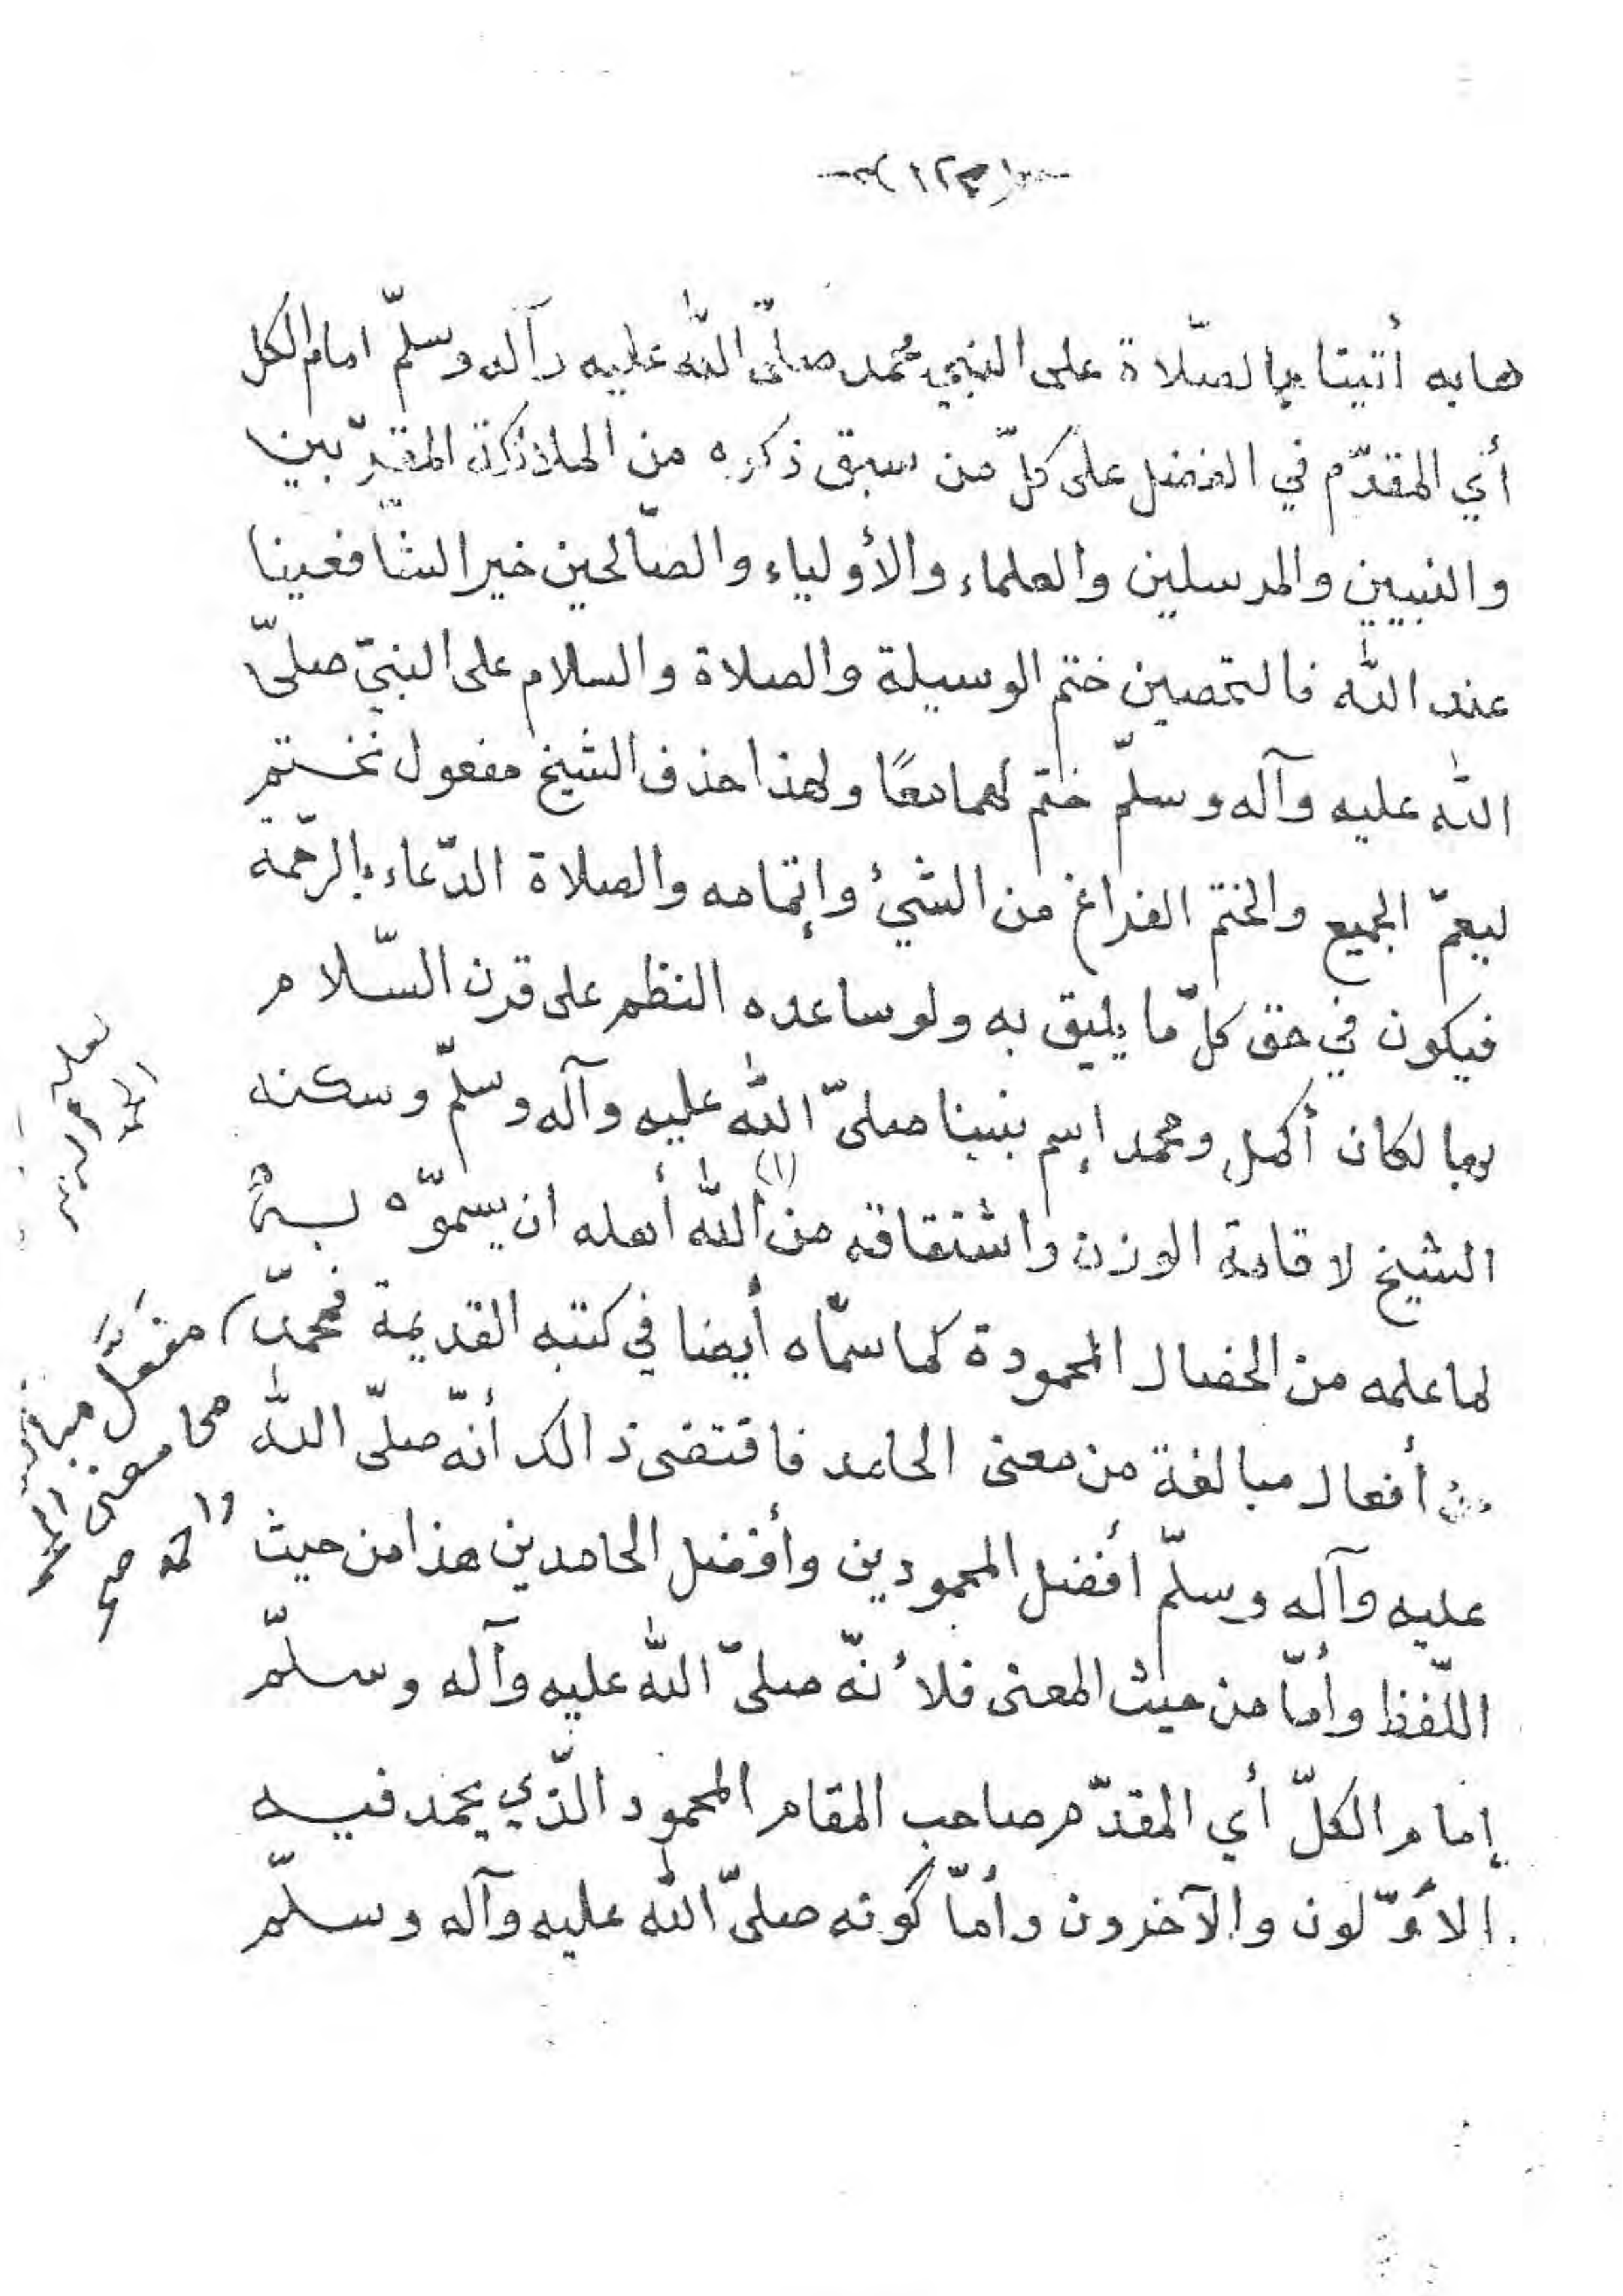 هابه أتينا بالصّلاة على النبي محمد صلّى اللّه عليه وآله وسلّم امام الكل
أي المقدّم في الفضل على كلّ من سبق ذكره من الملائكة المقرّبين
والنبيين والمرسلين والعلماء والأولياء والصّالحين خير الشّافعينا
عند اللّه فالتحصين ختم الوسيلة والصلاة والسلام على النبيّ صلّى
اللّه عليه وآله وسلّم ختم لهما معًا ولهذا حذف الشيخ مفعول نختتم
ليعمّ الجميع والختم الفراغ من الشيئ وإتمامه والصلاة الدّعاء بالرّحمة
فيكون في حق كلّ ما يليق به ولو ساعده النظم على قرن السّلام
بها لكان أكمل ومحمد إسم نبينا صلّى اللّه عليه وآله وسلّم وسكنه
الشيخ لاقامة الوزن واشتقاقه من (١) اللّه أهله ان يسموّه به
لما علمه من الخصال المحمودة كما سمّاه أيضا في كتبه القديمة فمحمّد
من أفعال مبالغة من معنى الحامد فاقتضى ذالك أنّه صلّى اللّه
عليه وآله وسلّم أفضل المحمودين وأفضل الحامدين هذا من حيث
اللّفظ وأمّا من حيث المعنى فلأنّه صلّى اللّه عليه وآله وسلّم
إمام الكلّ أي المقدّم صاحب المقام المحمود الّذي يحمد فيه
الأوّلون والآخرون وأمّا كونه صلّى اللّه عليه وآله وسلّم
لعله
مفعّل
معنى